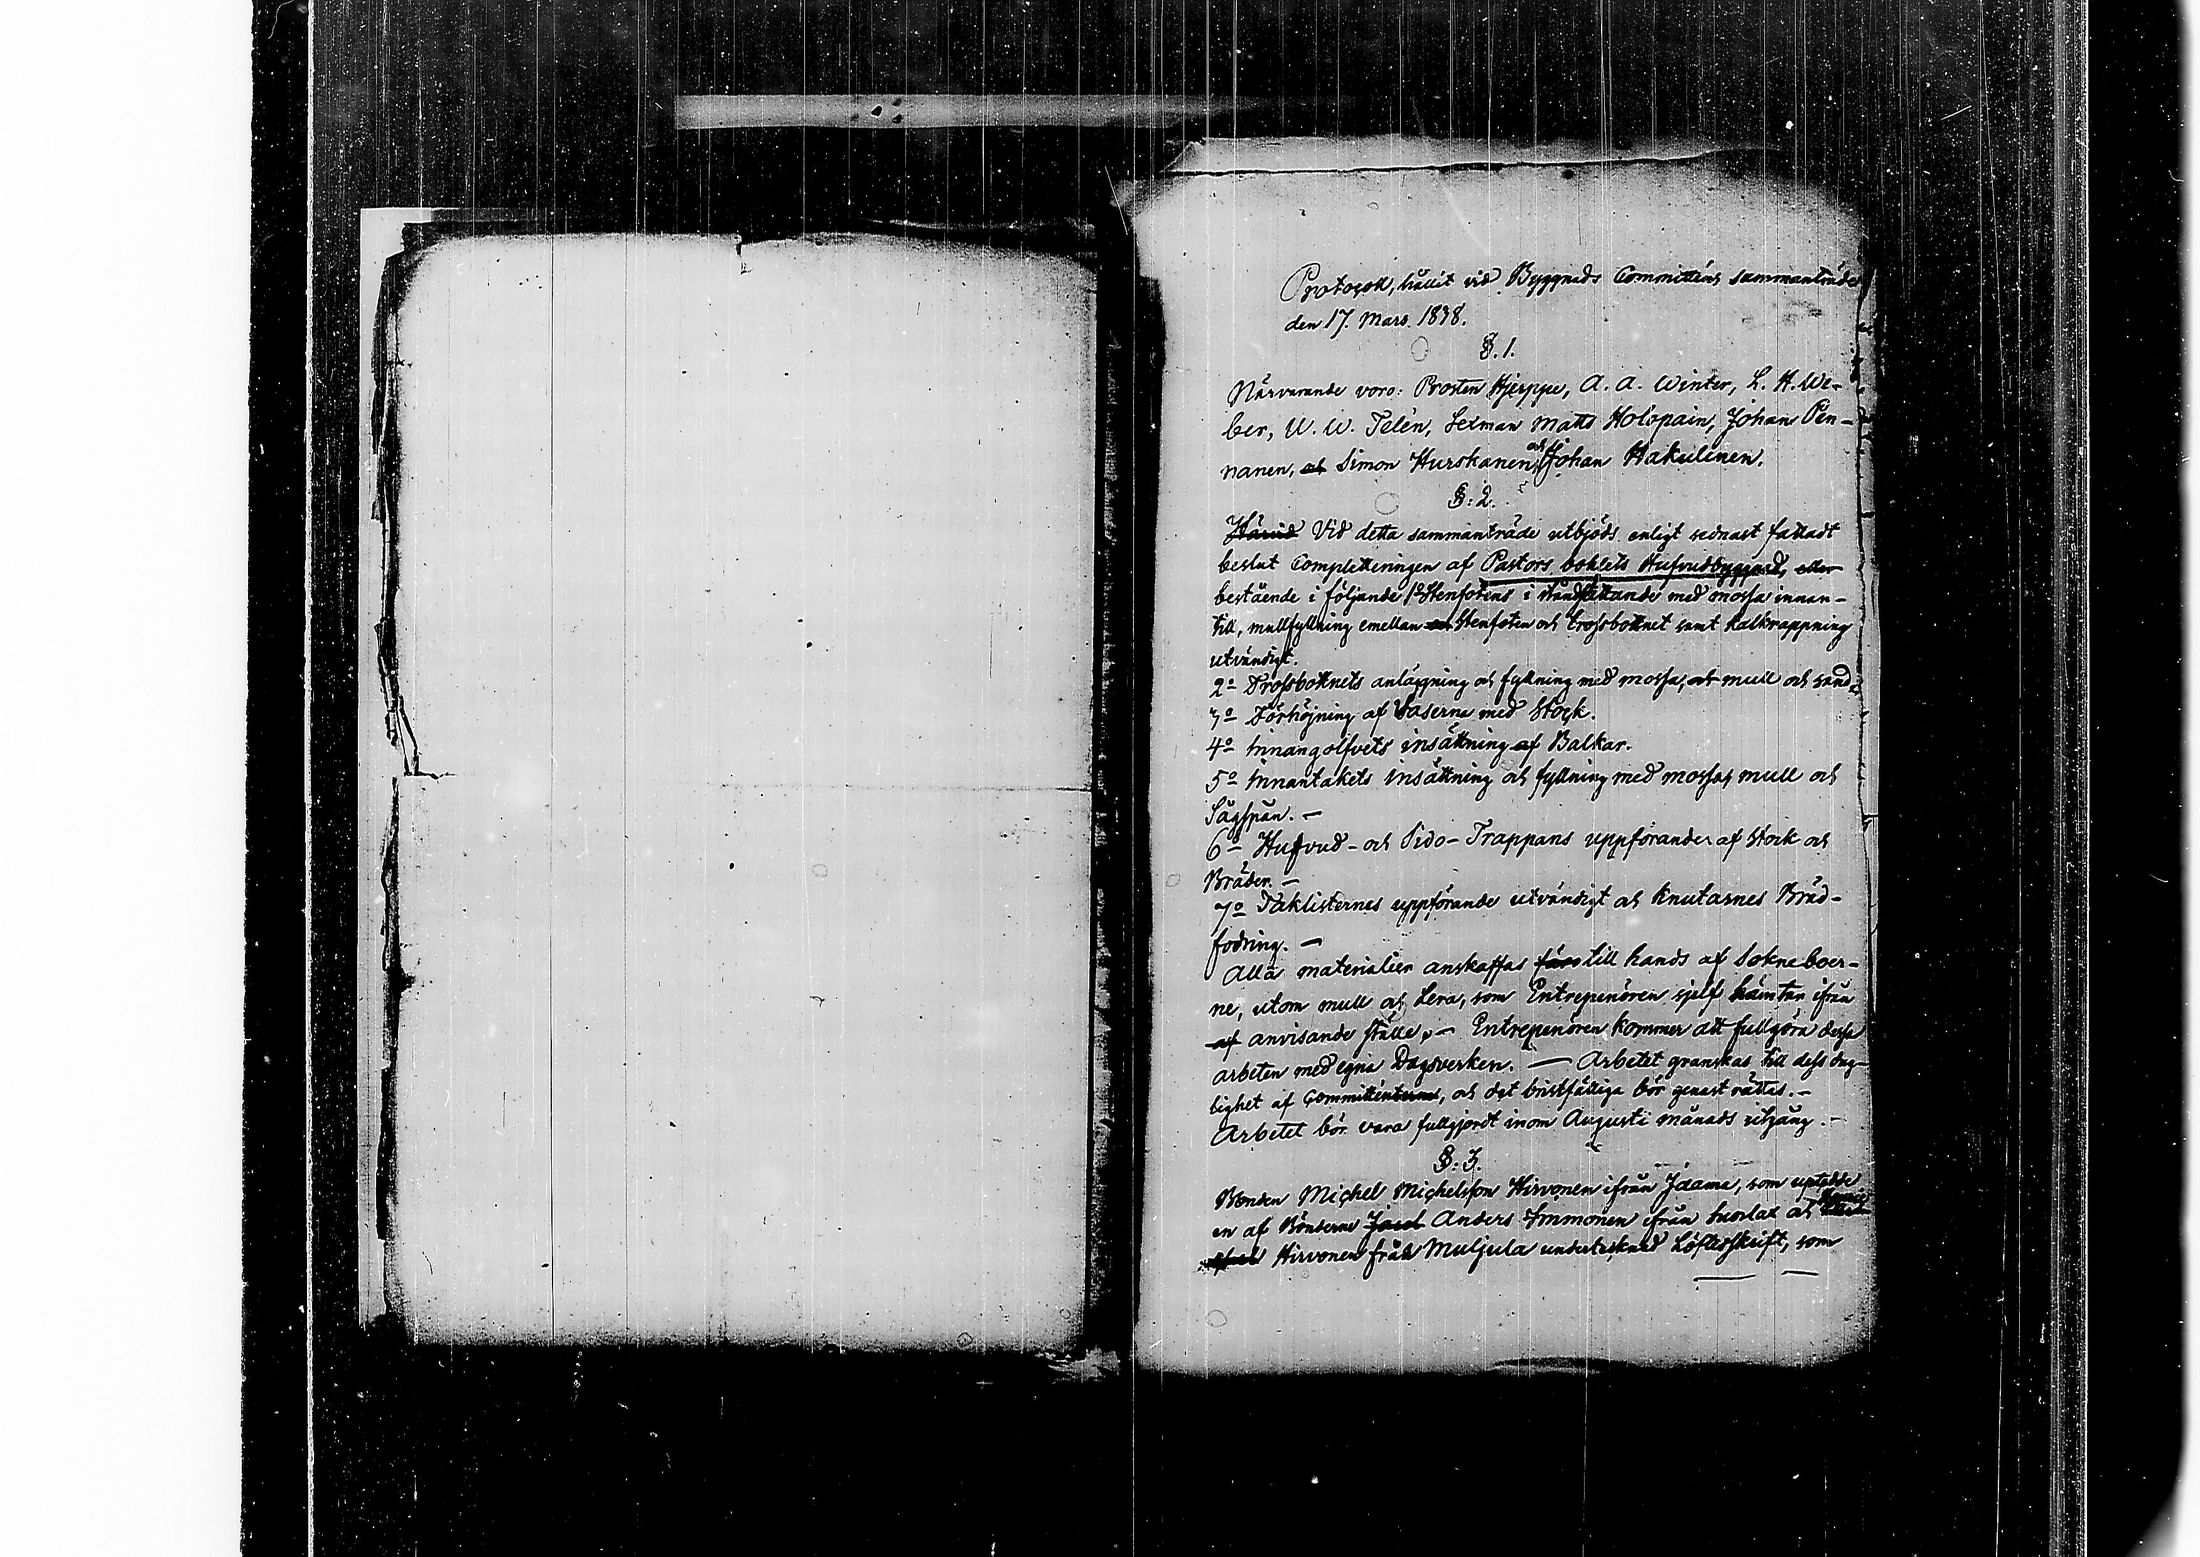 Protocoll, hållit vid Byggnads Committéns sammanträde
den 17. Mars. 1838.
§. 1.
Närvarande voro: Prosten Hjerppe, A. A. Winter, L. H. We-
ber, W. W. Telén, Sexman Matts Holopain, Johan Pen-
nanen, och Simon Hurskanen, och Johan Hakulinen.
§. 2.
Härvid Vid detta sammanträde utbjöds enligt sednast fattadt
beslut Completteringen af Pastors bohlets Hufvudbyggnad, eller
bestående i följande 1o Stenfotens i ståndsettande med mossa innan-
till, mullfyllning emellan Stenfoten och trossbottnet samt kalkrappning
utvändigt.
2o Trossbottnets anläggning och fyllning med mossa, och mull och sand.
3o Förhöjning af Vaserna med Stock.
4o Innangolfvets insättning af Balkar.
5o Innantakets insättning och fyllning med mossa, mull och
Sågspån. —
6o Hufvud- och Sido-Trappans uppförande af Stock och
Bräder. —
7o Taklisternes uppförande utvändigt och Knutarnes Bräd-
fodring. —
Alla materialier anskaffas till hands af Sokneboer-
ne, utom mull och Lera, som Entrepenören sjelf hämtar ifrån
af anvisande ställe. — Entreprenören kommer att fullgöra dessa
arbeten med egna Dagsverken. — Arbetet granskas till dess dug-
lighet af Committén, och det bristfälliga bör genast rättas. —
Arbetet bör vara fullgjordt inom Augusti månads utgång. —
§. 3.
Bonden Michel Michelsson Hirvonen ifrån Jaama, som uptedde
en af Bönderne Anders Immonen ifrån och
Hirvonen från Muljula undertecknad Löftesskrift, som